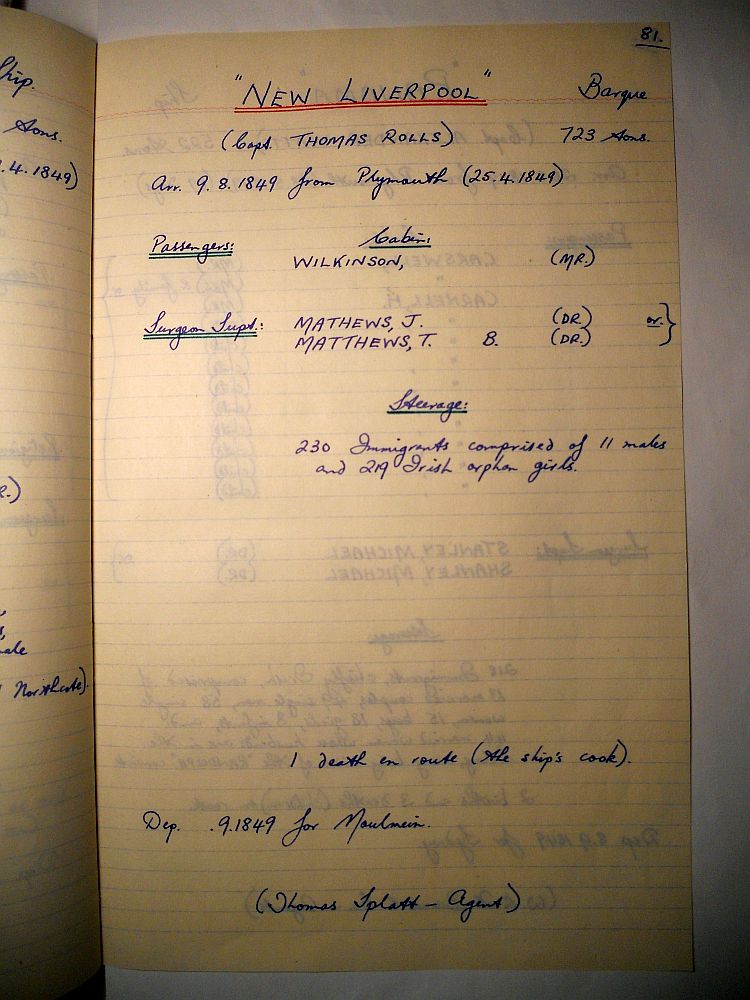 81.
"NEW LIVERPOOL" Barque
(Capt. THOMAS ROLLS) 723 tons.
Arr. 9.8.1849 from Plymouth (25.4.1849)
Passengers: Cabin:
WILKINSON, (MR.)
Surgeon Supt.: MATHEWS, J. (DR.) or }
MATTHEWS, T. B. (DR.)
Steerage:
230 Immigrants comprised of 11 males
and 219 Irish orphan girls.
1 death en route (the ship's cook).
Dep. .9.1849 for Moulmein.
(Thomas Splatt - Agent)
Ship.
tons.
.4.1849)
R.)
Northcote).